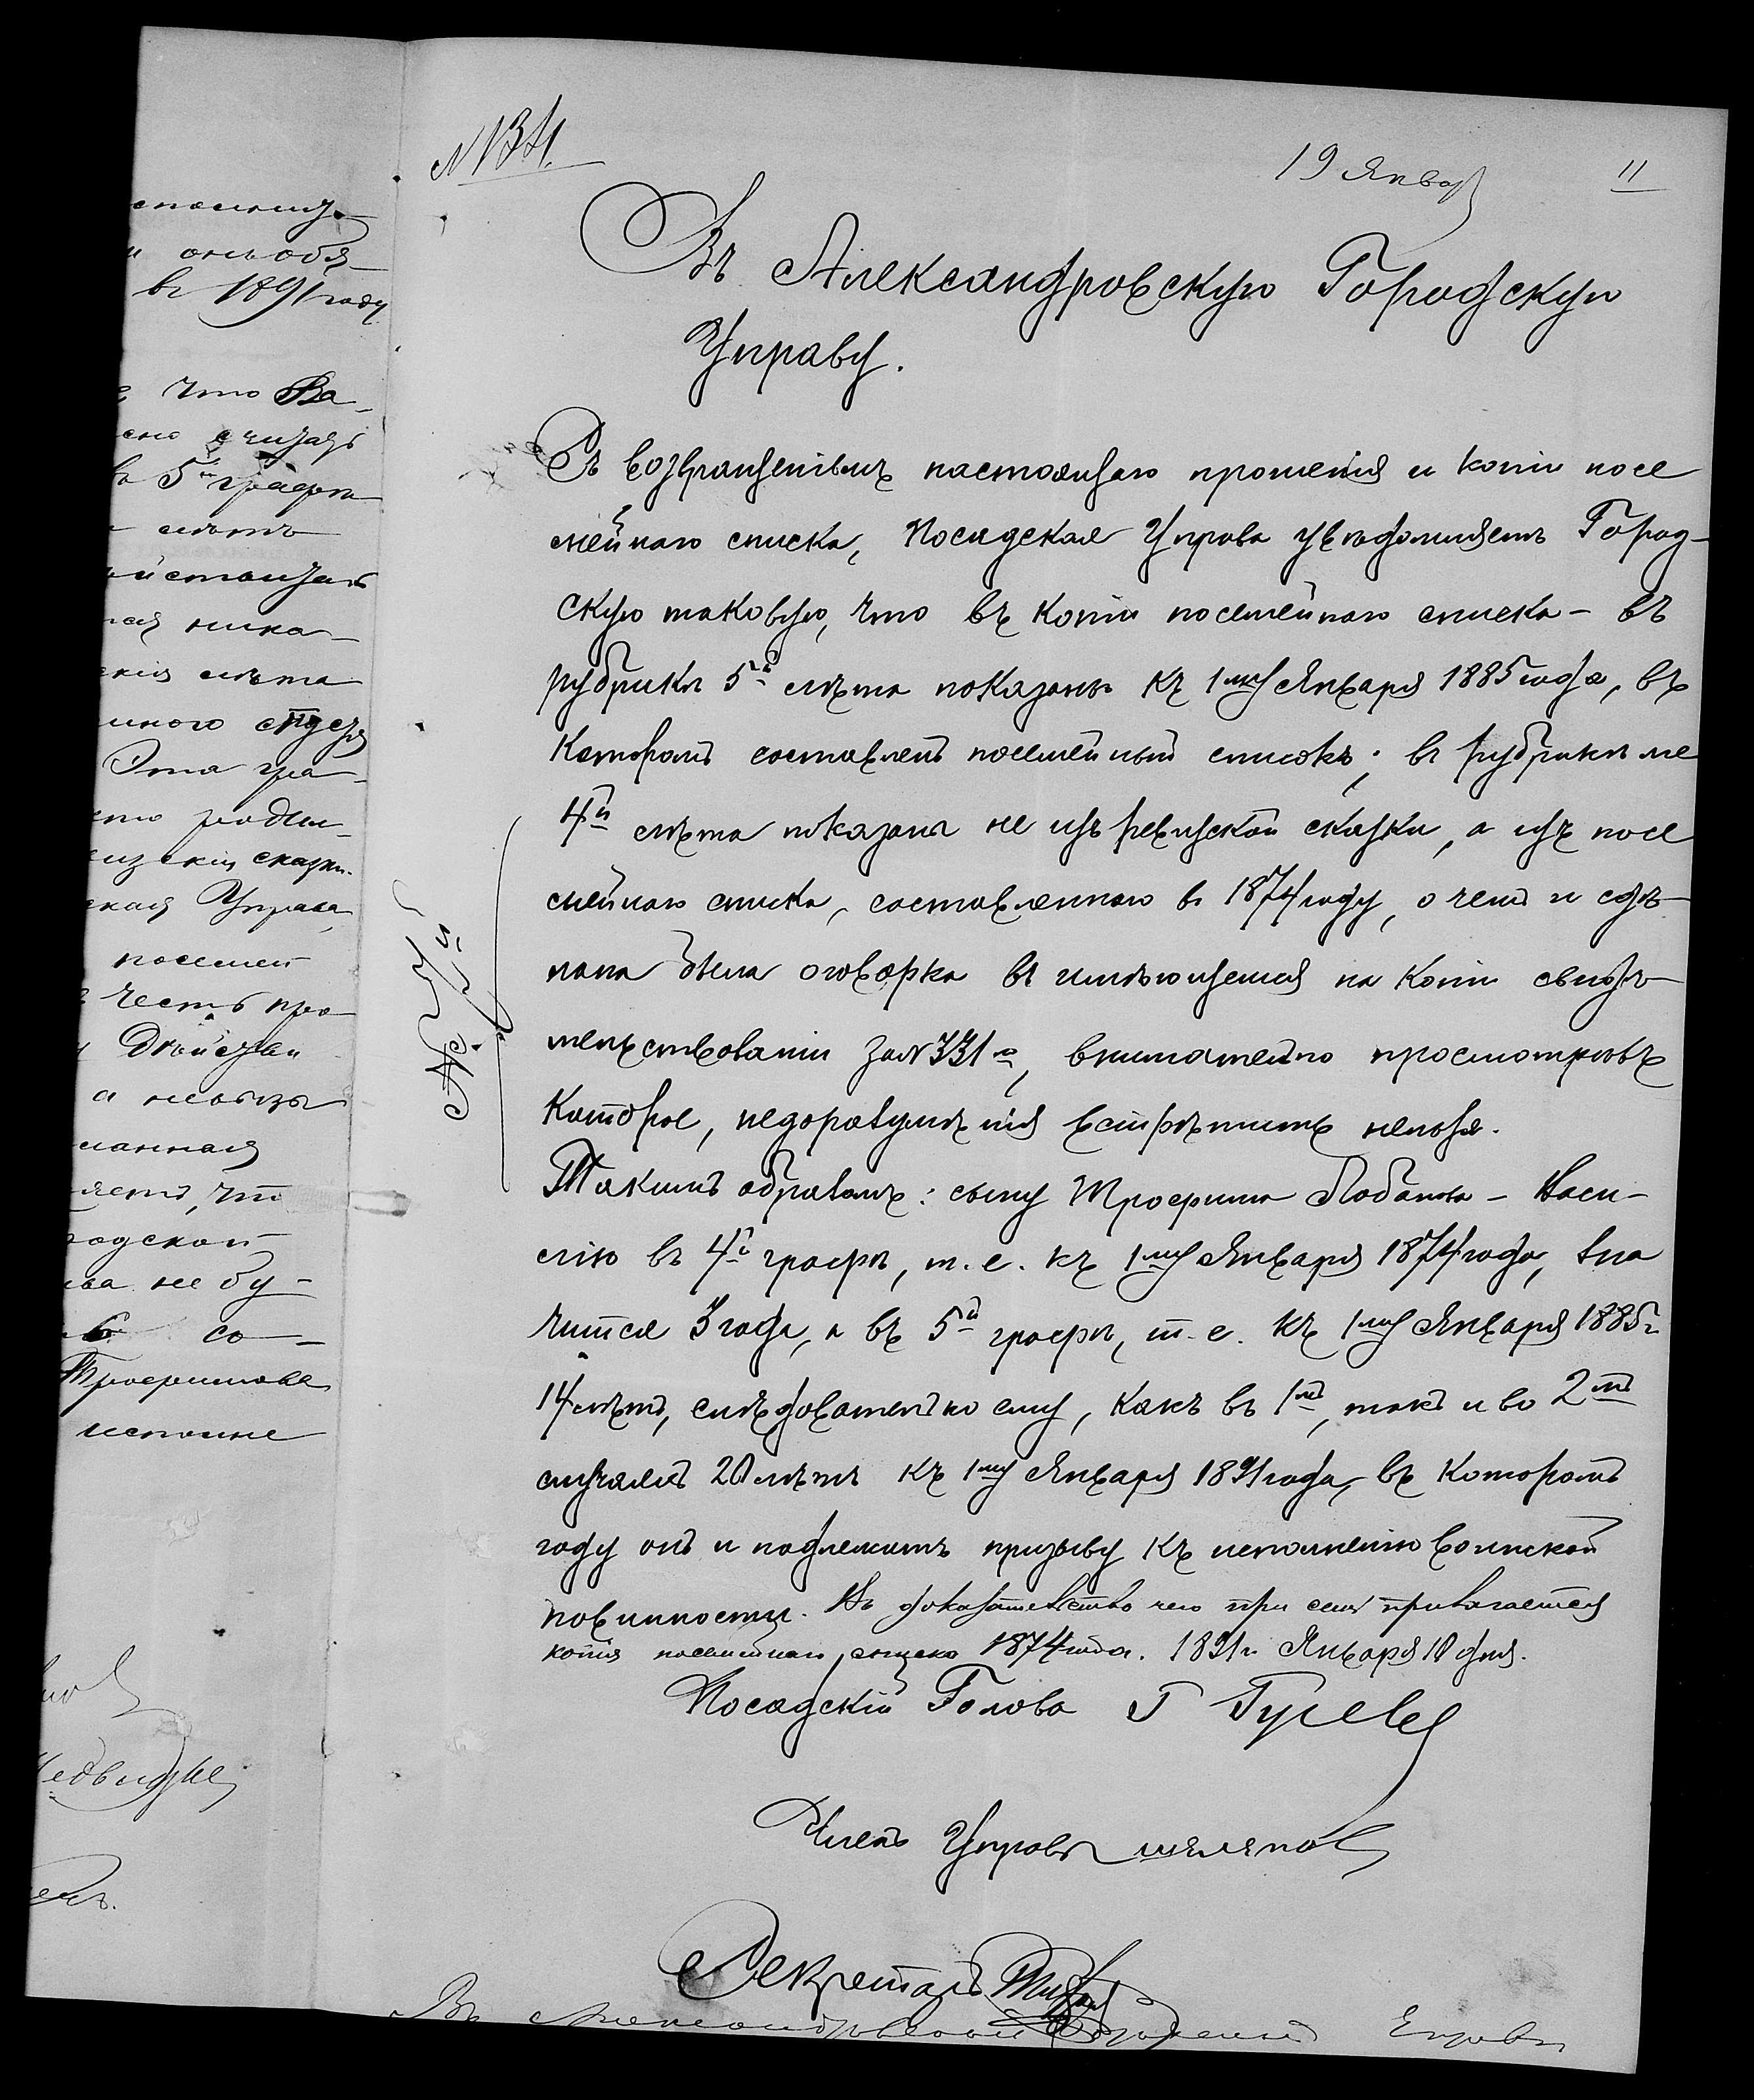 19 Январ
11
Въ Александровскую Городскую
Управу.
Съ возвращеніемъ настоящаго прошенія и копіи посе
мейнаго списка, Посадская Управа увѣдомляетъ Город-
скую таковую, что въ копіи посемейнаго списка – въ
рубрикѣ 5й лѣта показаны къ 1му Января 1885 года, въ
которомъ составленъ посемейный списокъ; въ рубрикѣ же
4й лѣта показаны не изъ ревизской сказки, а изъ посе
мейнаго списка, составленнаго въ 1874 году, о чемъ и сдѣ-
лана была оговорка въ имѣющемся на копіи свидѣ-
тельствованіи за № 331м, внимательно просмотрѣвъ
которое, недоразумѣнія встрѣтить нельзя.
Такимъ образомъ: сыну Трофима Лобанова – Васи-
лію въ 4й графѣ, т. е. къ 1му Января 1874 года, зна
чится 3 года, а въ 5й графѣ, т. е. къ 1му Января 1885 г.
14 лѣтъ, слѣдовательно ему, какъ въ 1мъ, такъ и во 2мъ
случаяхъ 20 лѣтъ къ 1му Января 1891 года, въ которомъ
году онъ и подлежитъ призыву къ исполненію воинской
повинности. Въ доказательство чего при семъ прилагается
копія посемейнаго списка 1874 года. 1891 г. Января 18 дня.
Посадскій Голова Г Гусевъ
Членъ Управы
Секретарь
Въ Александровской Городской Управы
спомину
и онъ обя-
въ 1891 году.
что Ва-
считать
въ 5й графѣ
лѣтъ
ника-
лѣта
Эта гра-
сказки.
Управа,
посемей
честь про-
Двѣйстви
а
что
родской
не бу-
со-
Трофимова
исполне